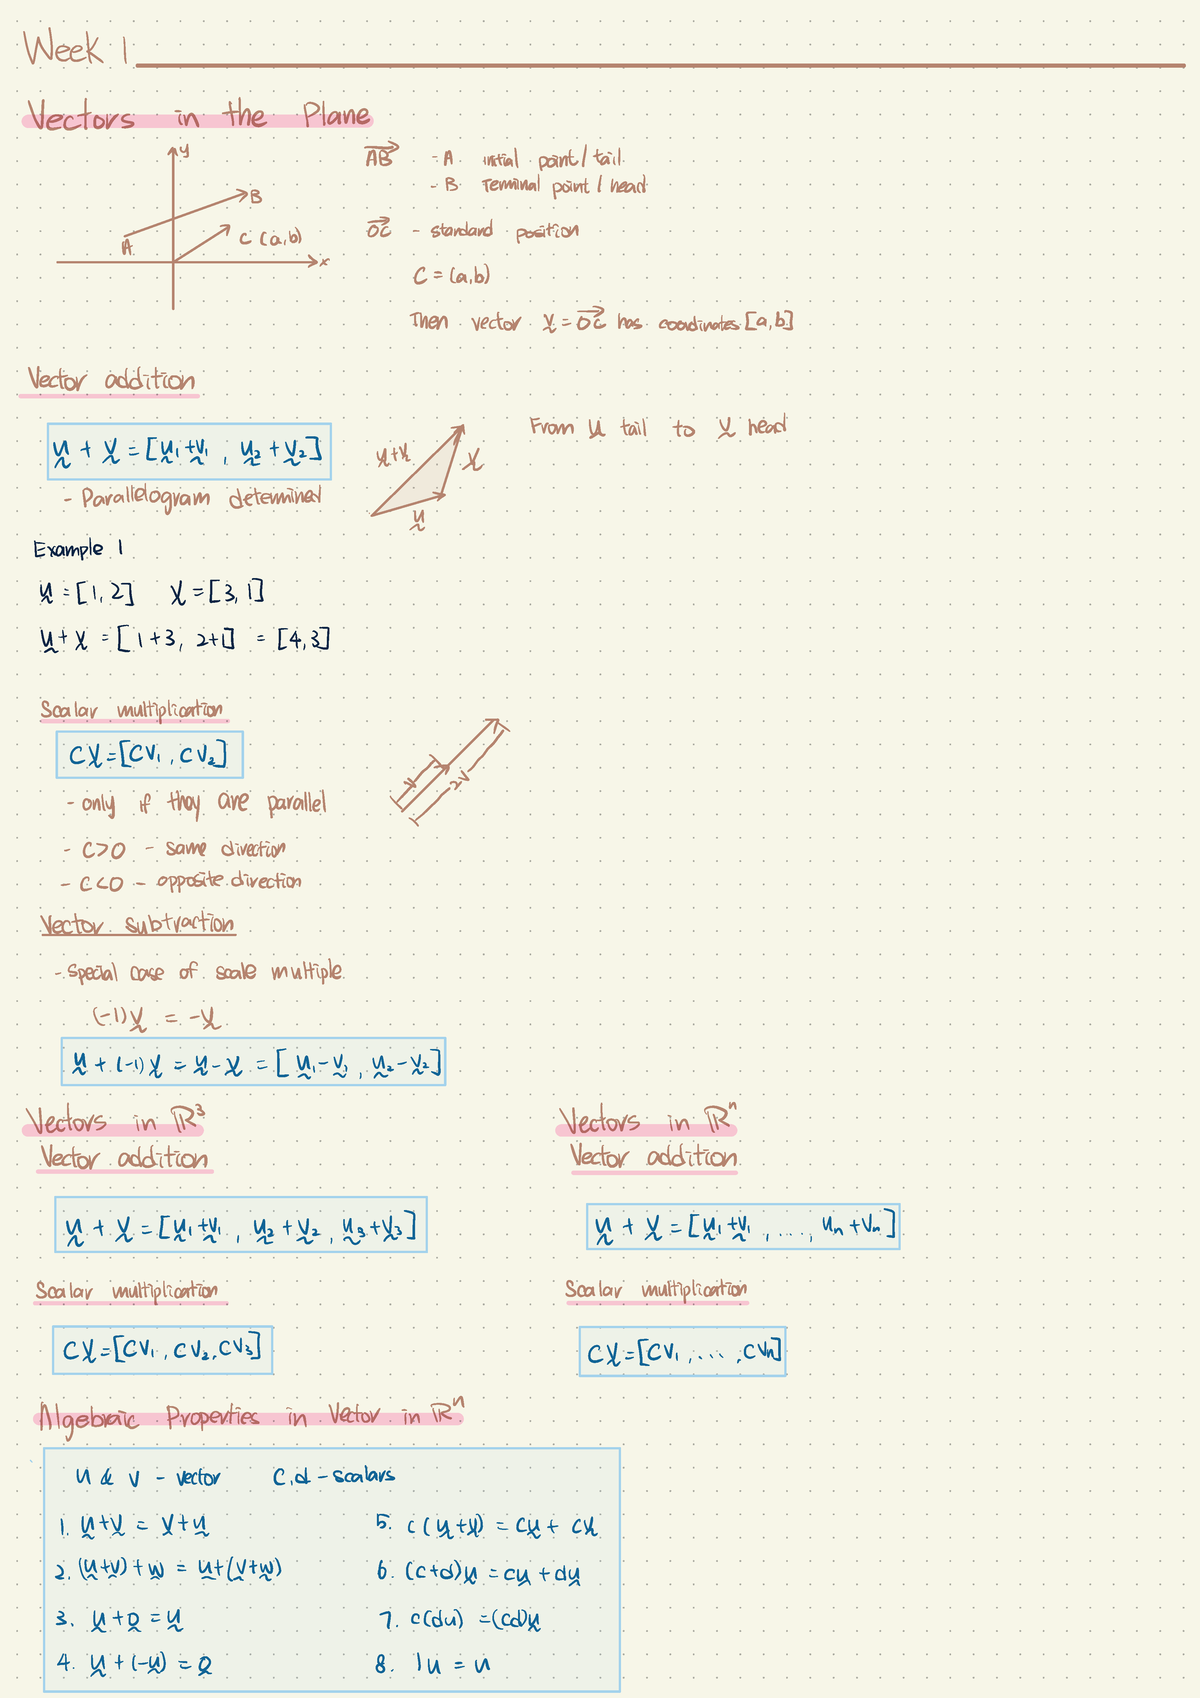 Week 1
Vectors in the Plane
y
B
A
C (a,b)
x
AB - A initial point / tail
- B Terminal point / head
OC - standard position
C = (a,b)
Then vector v = OC has coordinates [a,b]
Vector addition
u + v = [u₁+v₁ , u₂+v₂]
- Parallelogram determined
u+v
v
u
From u tail to v head
Example 1
u = [1,2] v = [3,1]
u+v = [1+3, 2+1] = [4,3]
Scalar multiplication
cv = [cv₁ , cv₂]
v
2v
- only if they are parallel
- c>0 - same direction
- c<0 - opposite direction
Vector subtraction
- special case of scale multiple
(-1)v = -v
u + (-1)v = u - v = [u₁-v₁ , u₂-v₂]
Vectors in ℝ³
Vector addition
u + v = [u₁+v₁ , u₂+v₂ , u₃+v₃]
Scalar multiplication
cv = [cv₁ , cv₂, cv₃]
Vectors in ℝⁿ
Vector addition
u + v = [u₁+v₁ , ..., uₙ+vₙ]
Scalar multiplication
cv = [cv₁ , ... , cvₙ]
Algebraic Properties in Vector in ℝⁿ
u & v - vector c,d - scalars
1. u+v = v+u
2. (u+v)+w = u+(v+w)
3. u+0 = u
4. u+(-u) = 0
5. c(u+v) = cu + cv
6. (c+d)u = cu + du
7. c(du) = (cd)u
8. 1u = u